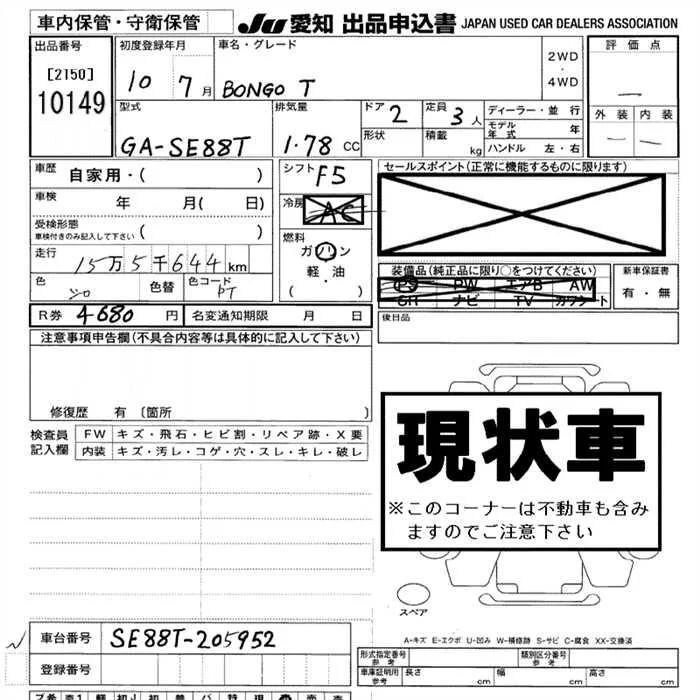 車内保管・守衛保管 JU 愛知 出品申込書 JAPAN USED CAR DEALERS ASSOCIATION
出品番号 初度登録年月 車名・グレード 2WD ・ 4WD 評価点
[2150]
10149 10 7月 BONGO T —
型式 排気量 ドア 定員 ディーラー・並行 外装 内装
GA-SE88T 1.78CC 2 3人 モデル年式 年 — —
形状 積載 kg ハンドル 左・右
車歴 自家用・( ) シフト F5 セールスポイント(正常に機能するものに限ります)
車検 年 月( 日) 冷房 AC
受検形態
車検付きのみ記入して下さい ( )
燃料 ガソリン
軽・油
・( )
走行 15万5千644km
色 シロ 色替 色コード PT
装備品(純正品に限り○をつけてください) 新車保証書
PS PW エアB AW 有・無
SR ナビ TV カワシート
R券 4680円 名変通知期限 月 日 後日品
注意事項申告欄(不具合内容等は具体的に記入して下さい)
修復歴 有〔箇所 〕
検査員記入欄 FW キズ・飛石・ヒビ割・リペア跡・X要
内装 キズ・汚レ・コゲ・穴・スレ・キレ・破レ
現状車
※このコーナーは不動車も含み
ますのでご注意下さい
スペア
A-キズ E-エクボ U-凹み W-補修跡 S-サビ C-腐食 XX-交換済
車台番号 SE88T-205952
登録番号
形式指定番号 参考 類別区分番号 参考
車庫証明用 参考 長さ cm 幅 cm 高さ cm